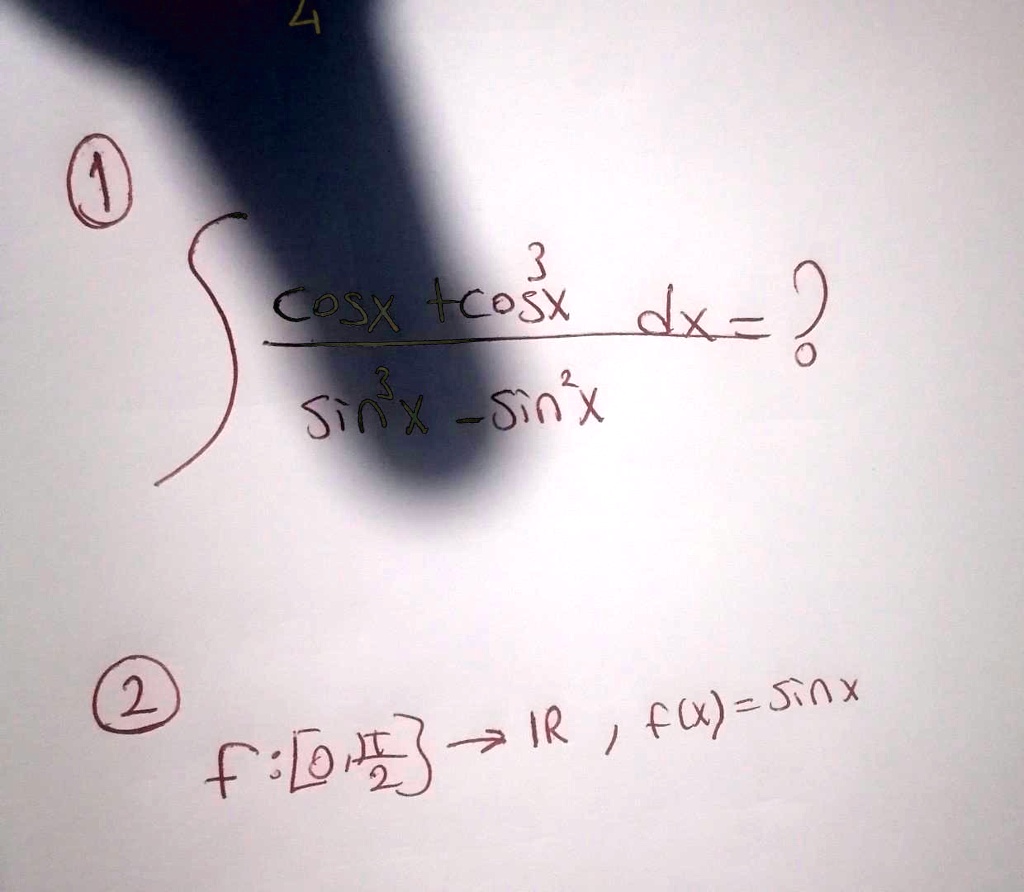 4
①
∫ (cosx + cos³x)/(sin³x - sin²x) dx = ?
②
f:[0,π/2] → IR , f(x) = sinx